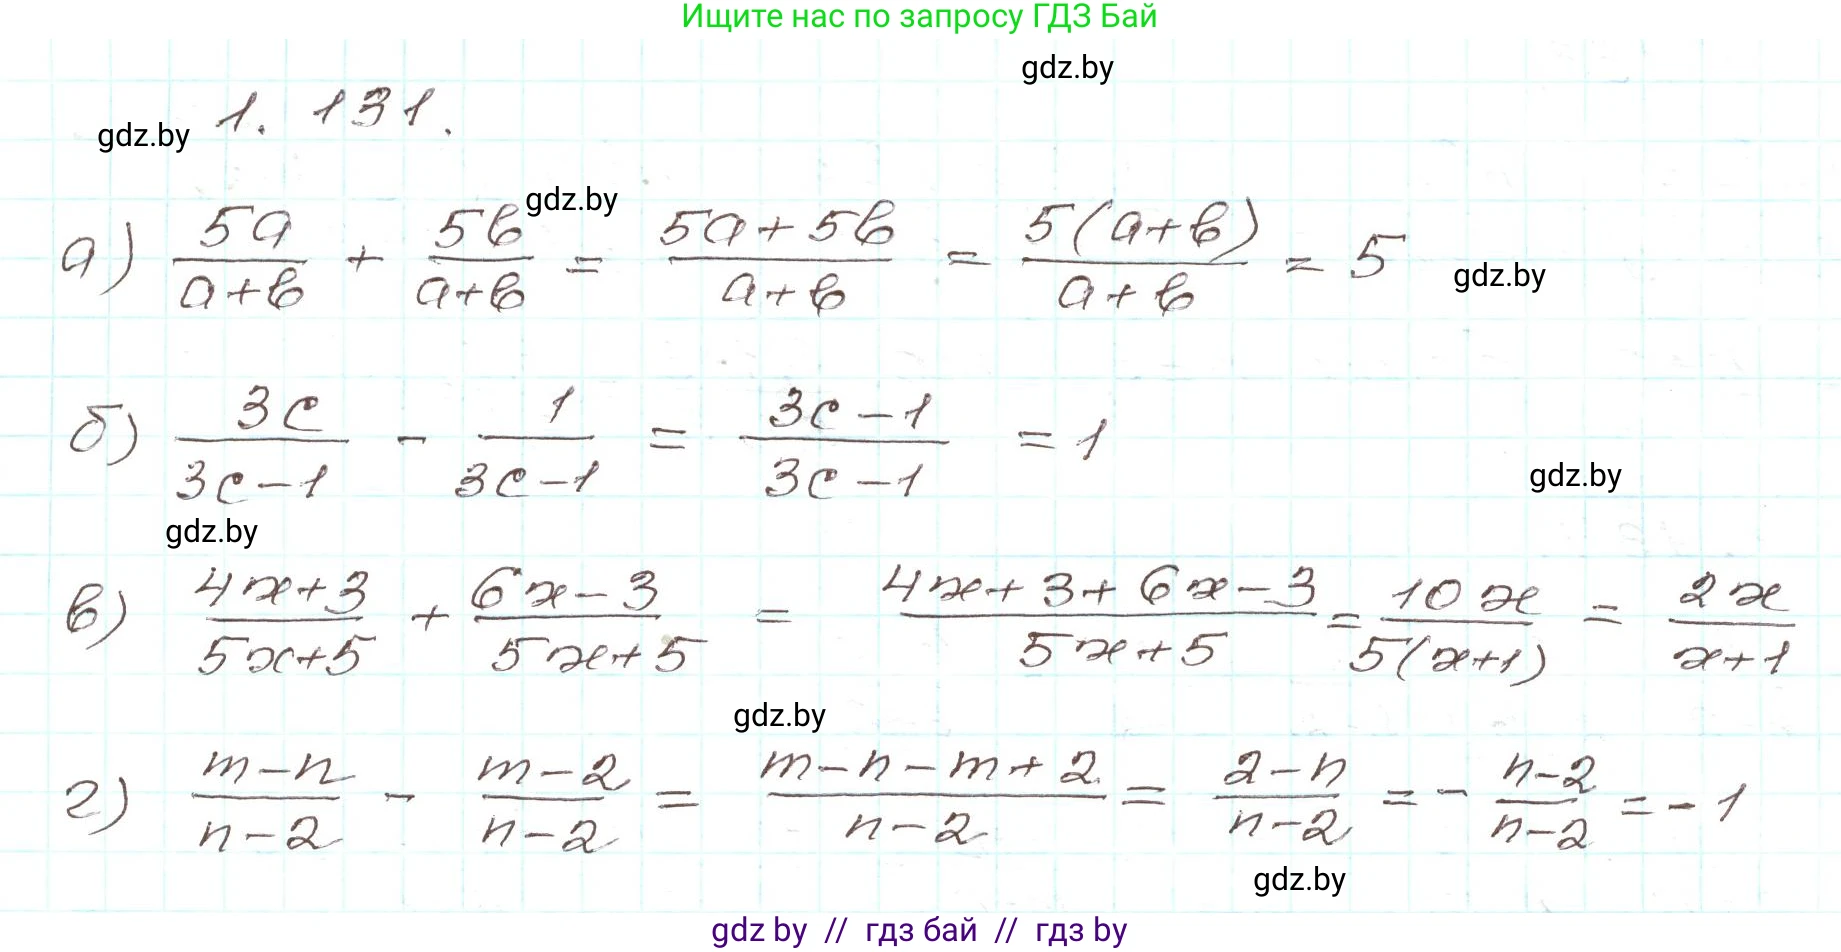 Ищите нас по запросу ГДЗ Бай
gdz.by
gdz.by 1. 131.
gdz.by
а) 5a/(a+b) + 5b/(a+b) = (5a+5b)/(a+b) = 5(a+b)/(a+b) = 5
gdz.by
б) 3c/(3c-1) - 1/(3c-1) = (3c-1)/(3c-1) = 1
gdz.by
gdz.by
в) (4x+3)/(5x+5) + (6x-3)/(5x+5) = (4x+3+6x-3)/(5x+5) = 10x/(5(x+1)) = 2x/(x+1)
gdz.by
г) (m-n)/(n-2) - (m-2)/(n-2) = (m-n-m+2)/(n-2) = (2-n)/(n-2) = - (n-2)/(n-2) = -1
gdz.by
gdz by // гдз бай // гдз by